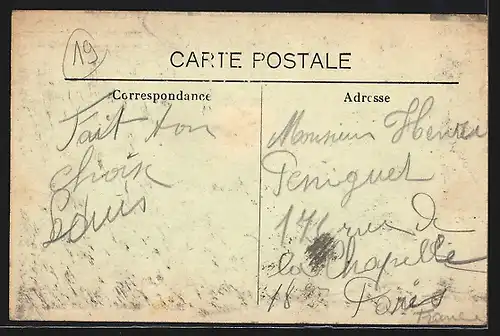 19
CARTE POSTALE
Correspondance
Adresse
Fait ton
choix
Louis
Monsieur Henri
Peniguet
176 rue de
la Chapelle
18 Paris
France